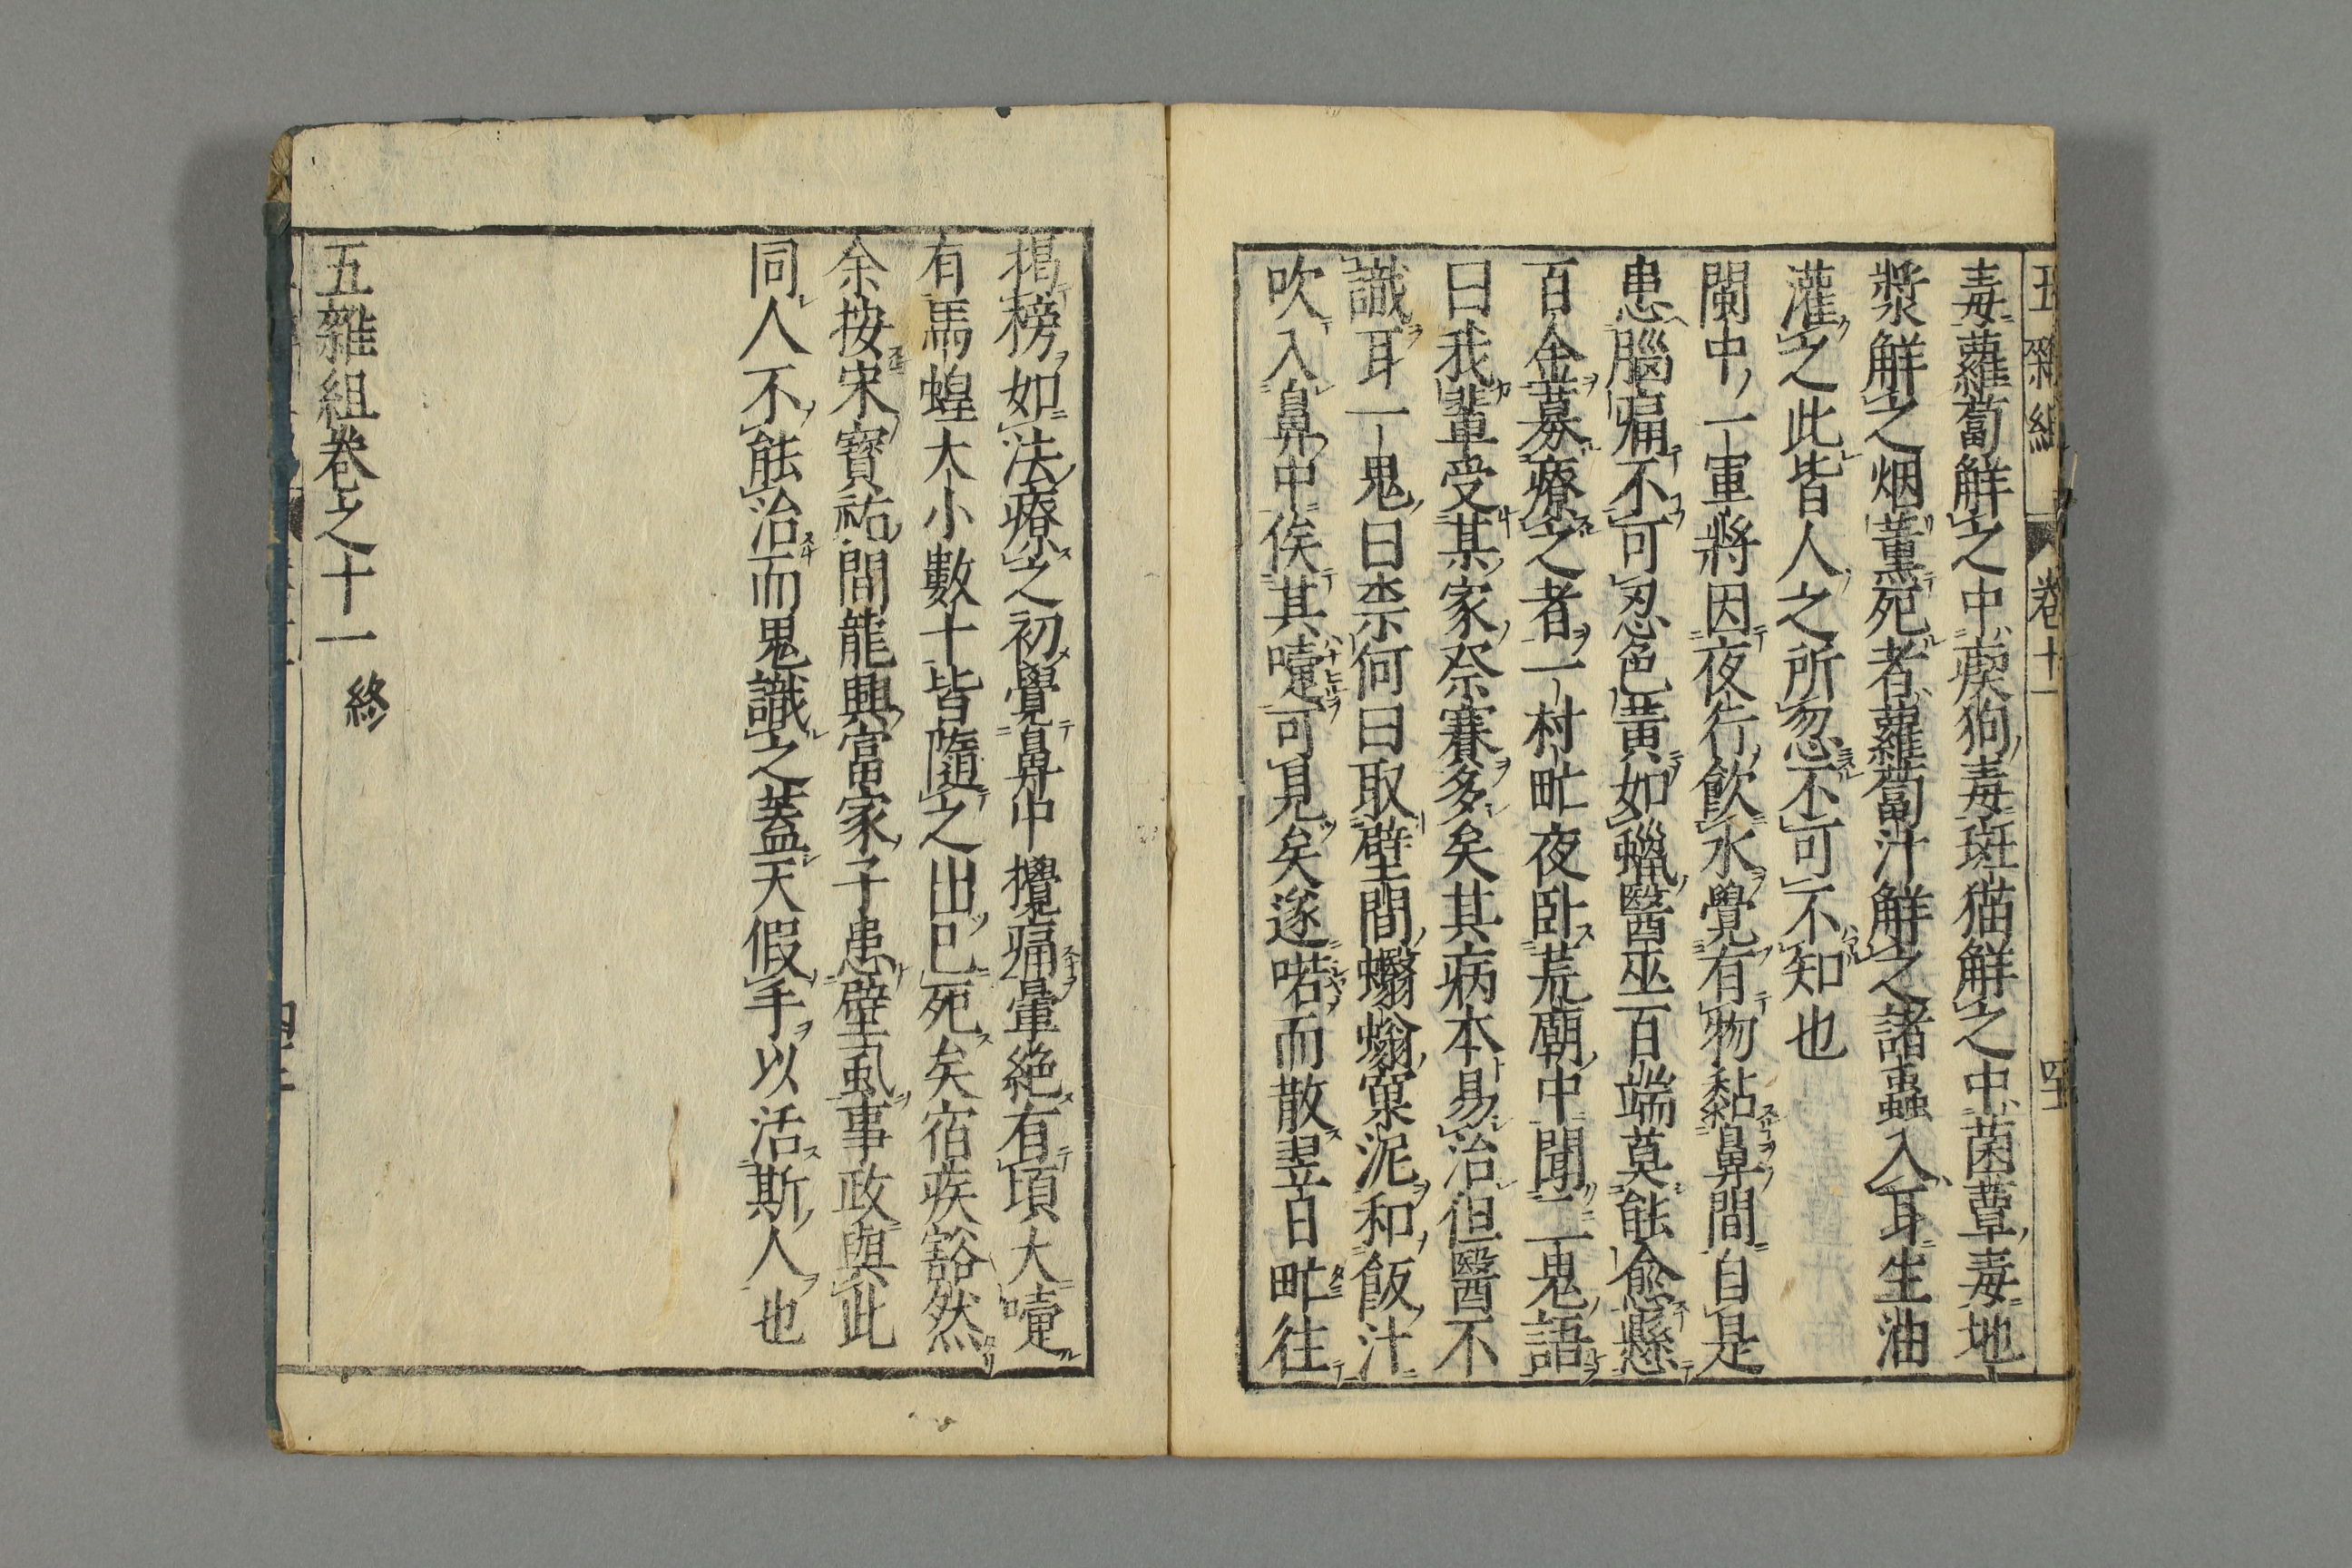 五雜組 卷十一
毒蘿蔔解之中瘈狗毒斑猫解之中菌蕈毒地
漿解之烟薰死者蘿蔔汁解之諸蟲入耳生油
灌之此皆人之所忽不可不知也
閩中一軍將因夜行飲水覺有物黏鼻間自是
患腦痛不可忍色黃如蠟醫巫百端莫能愈懸
百金募療之者一村甿夜臥荒廟中聞二鬼語
曰我輩受某家祭賽多矣其病本易治但醫不
識耳一鬼曰柰何曰取壁間蠮螉窠泥和飯汁
吹入鼻中俟其嚏可見矣遂喏而散翌日甿往
揭榜如法療之初覺鼻中攪痛暈絶有頃大嚏
有馬蝗大小數十皆隨之出已死矣宿疾豁然
余按宋寶祐間龍興富家子患壁虱事政與此
同人不能治而鬼識之蓋天假手以活斯人也
五雜組卷之十一 終